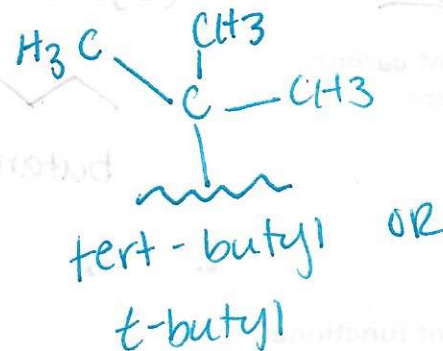 CH3
H3C
C — CH3
tert-butyl OR
t-butyl